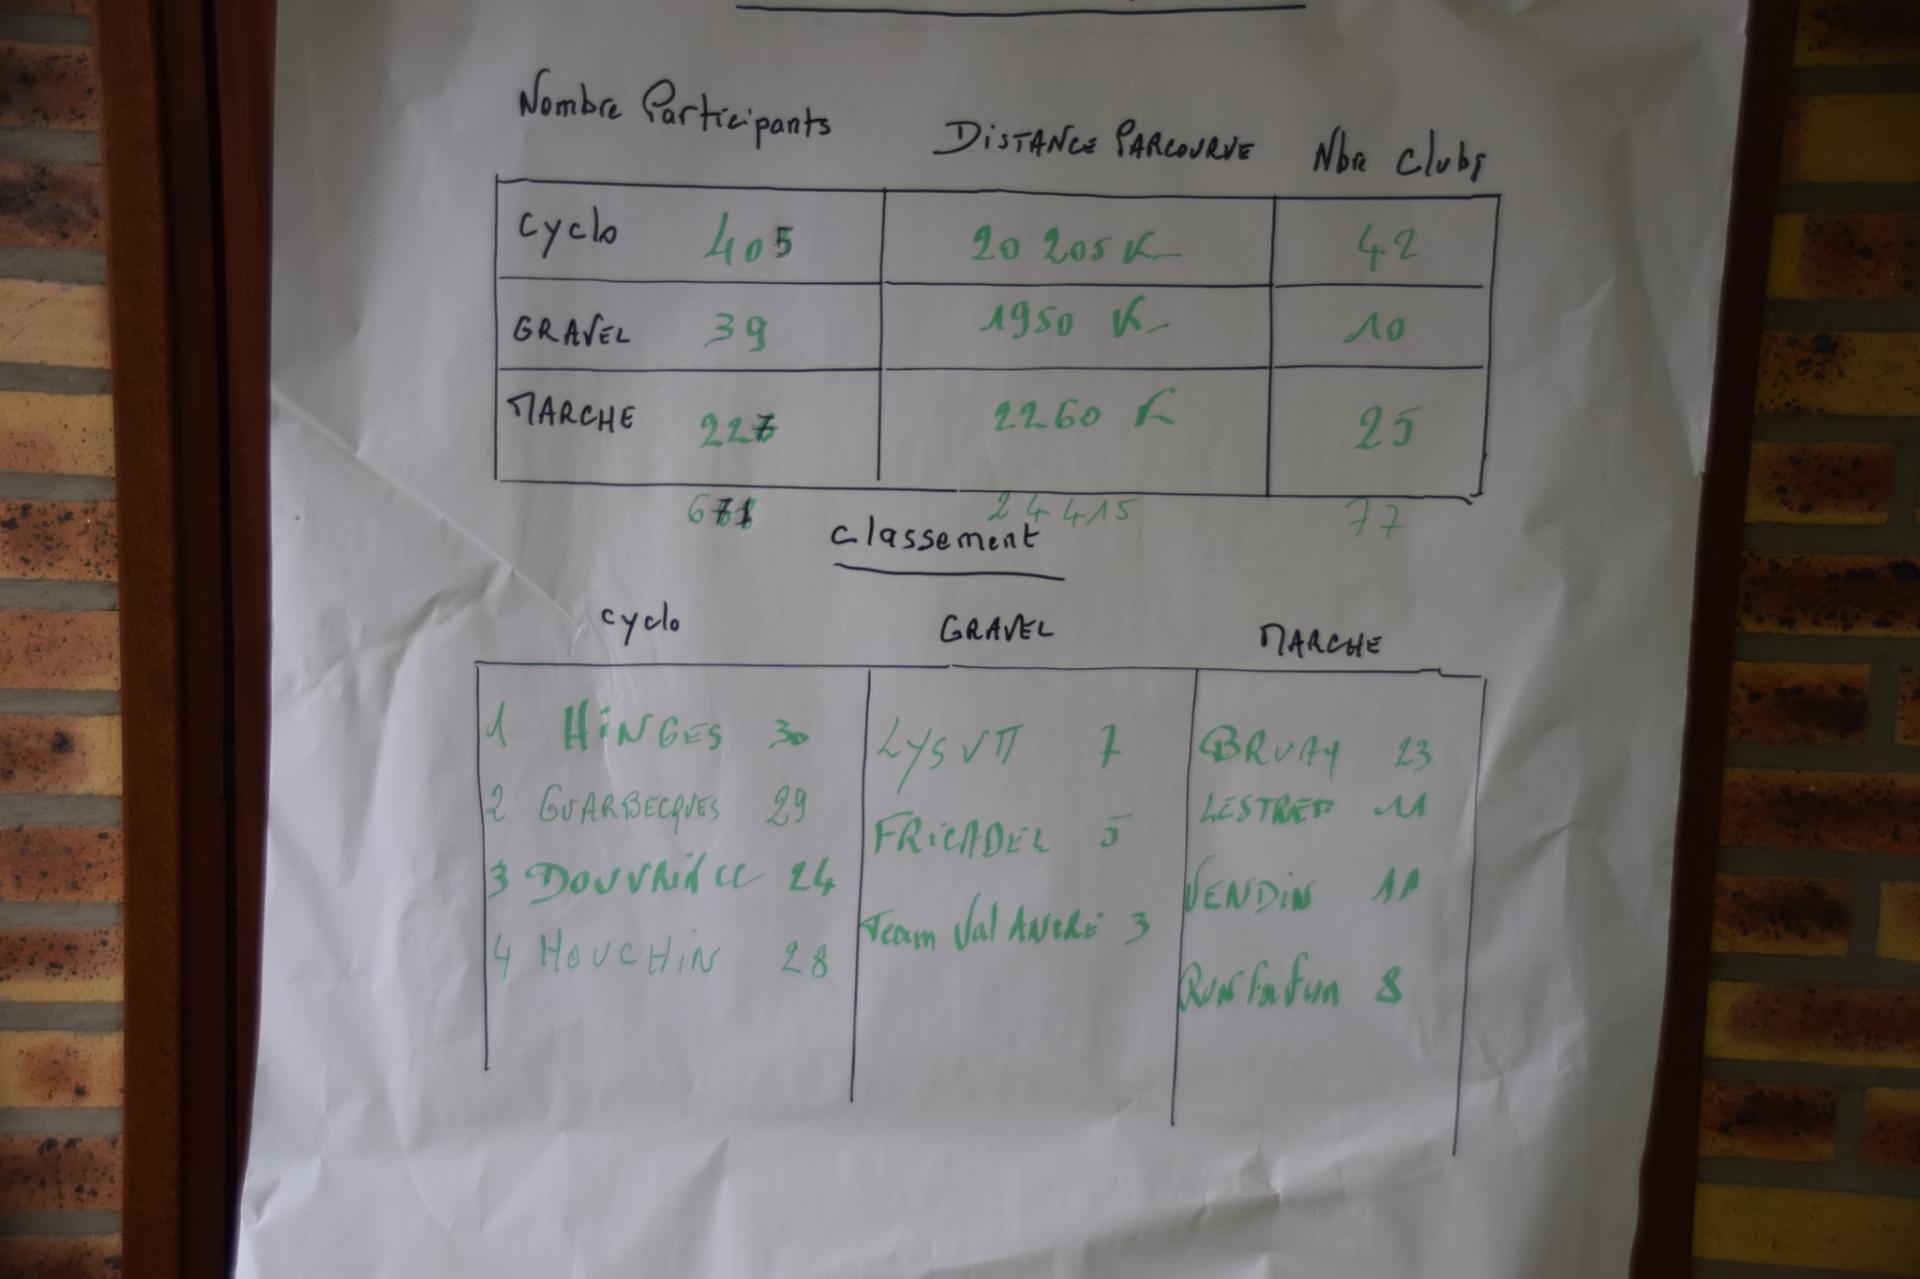 Nombre Participants DISTANCE PARCOURUE Nbre Clubs
Cyclo 405 20 205 K 42
GRAVEL 39 1950 K 10
MARCHE 227 2260 K 25
671 24 415 77
Classement
Cyclo GRAVEL MARCHE
1 HINGES 30 LYS VTT 7 BRUAY 23
2 GUARBECQUES 29 FRICADEL 5 LESTREM 11
3 DOUVRIN CC 24 Team Val ANDRÉ 3 VENDIN 11
4 HOUCHIN 28 8